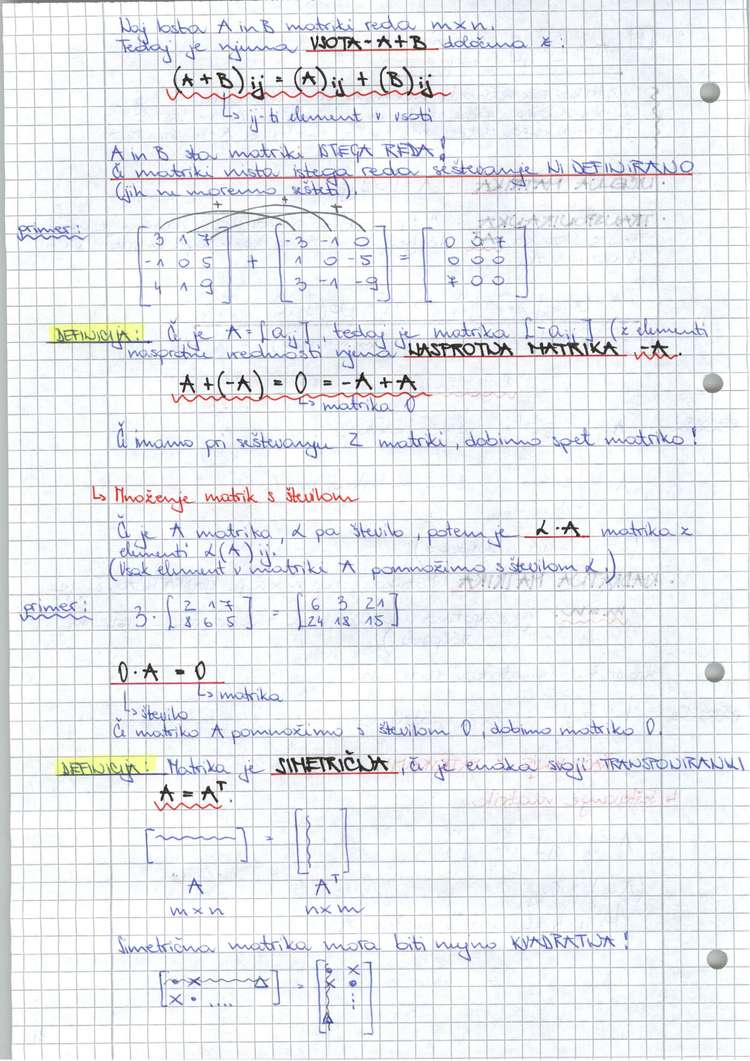 Naj bosta A in B matriki reda m×n.
Tedaj je njuna VSOTA - A+B določena z:
(A+B)ij = (A)ij + (B)ij
↳ ij-ti element v vsoti
A in B sta matriki ISTEGA REDA!
Če matriki nista istega reda seštevanje NI DEFINIRANO
(jih ne moremo sešteti).
+ + +
primer: [3 1 7] + [-3 -1 0] = [0 0 7]
[-1 0 5] [1 0 -5] [0 0 0]
[4 1 9] [3 -1 -9] [7 0 0]
DEFINICIJA: Če je A = [aij], tedaj je matrika [-aij] (z elementi
nasprotne vrednosti njena NASPROTNA MATRIKA -A.
A+(-A) = 0 = -A+A
↳ matrika 0
Če imamo pri seštevanju 2 matriki, dobimo spet matriko!
↳ Množenje matrik s številom
Če je A matrika, α pa število, potem je α·A matrika z
elementi α(A)ij.
(Vsak element v matriki A pomnožimo s številom α.)
primer: 3· [2 1 7] = [6 3 21]
[8 6 5] [24 18 15]
0·A = 0
↳ matrika
↳ število
Če matriko A pomnožimo s številom 0, dobimo matriko 0.
DEFINICIJA: Matrika je SIMETRIČNA, če je enaka svoji TRANSPONIRANKI
A = Aᵀ.
[ ] = [ ]
A Aᵀ
m×n n×m
Simetrična matrika mora biti nujno KVADRATNA!
[• × △] = [• ×]
[× • ....] [× •]